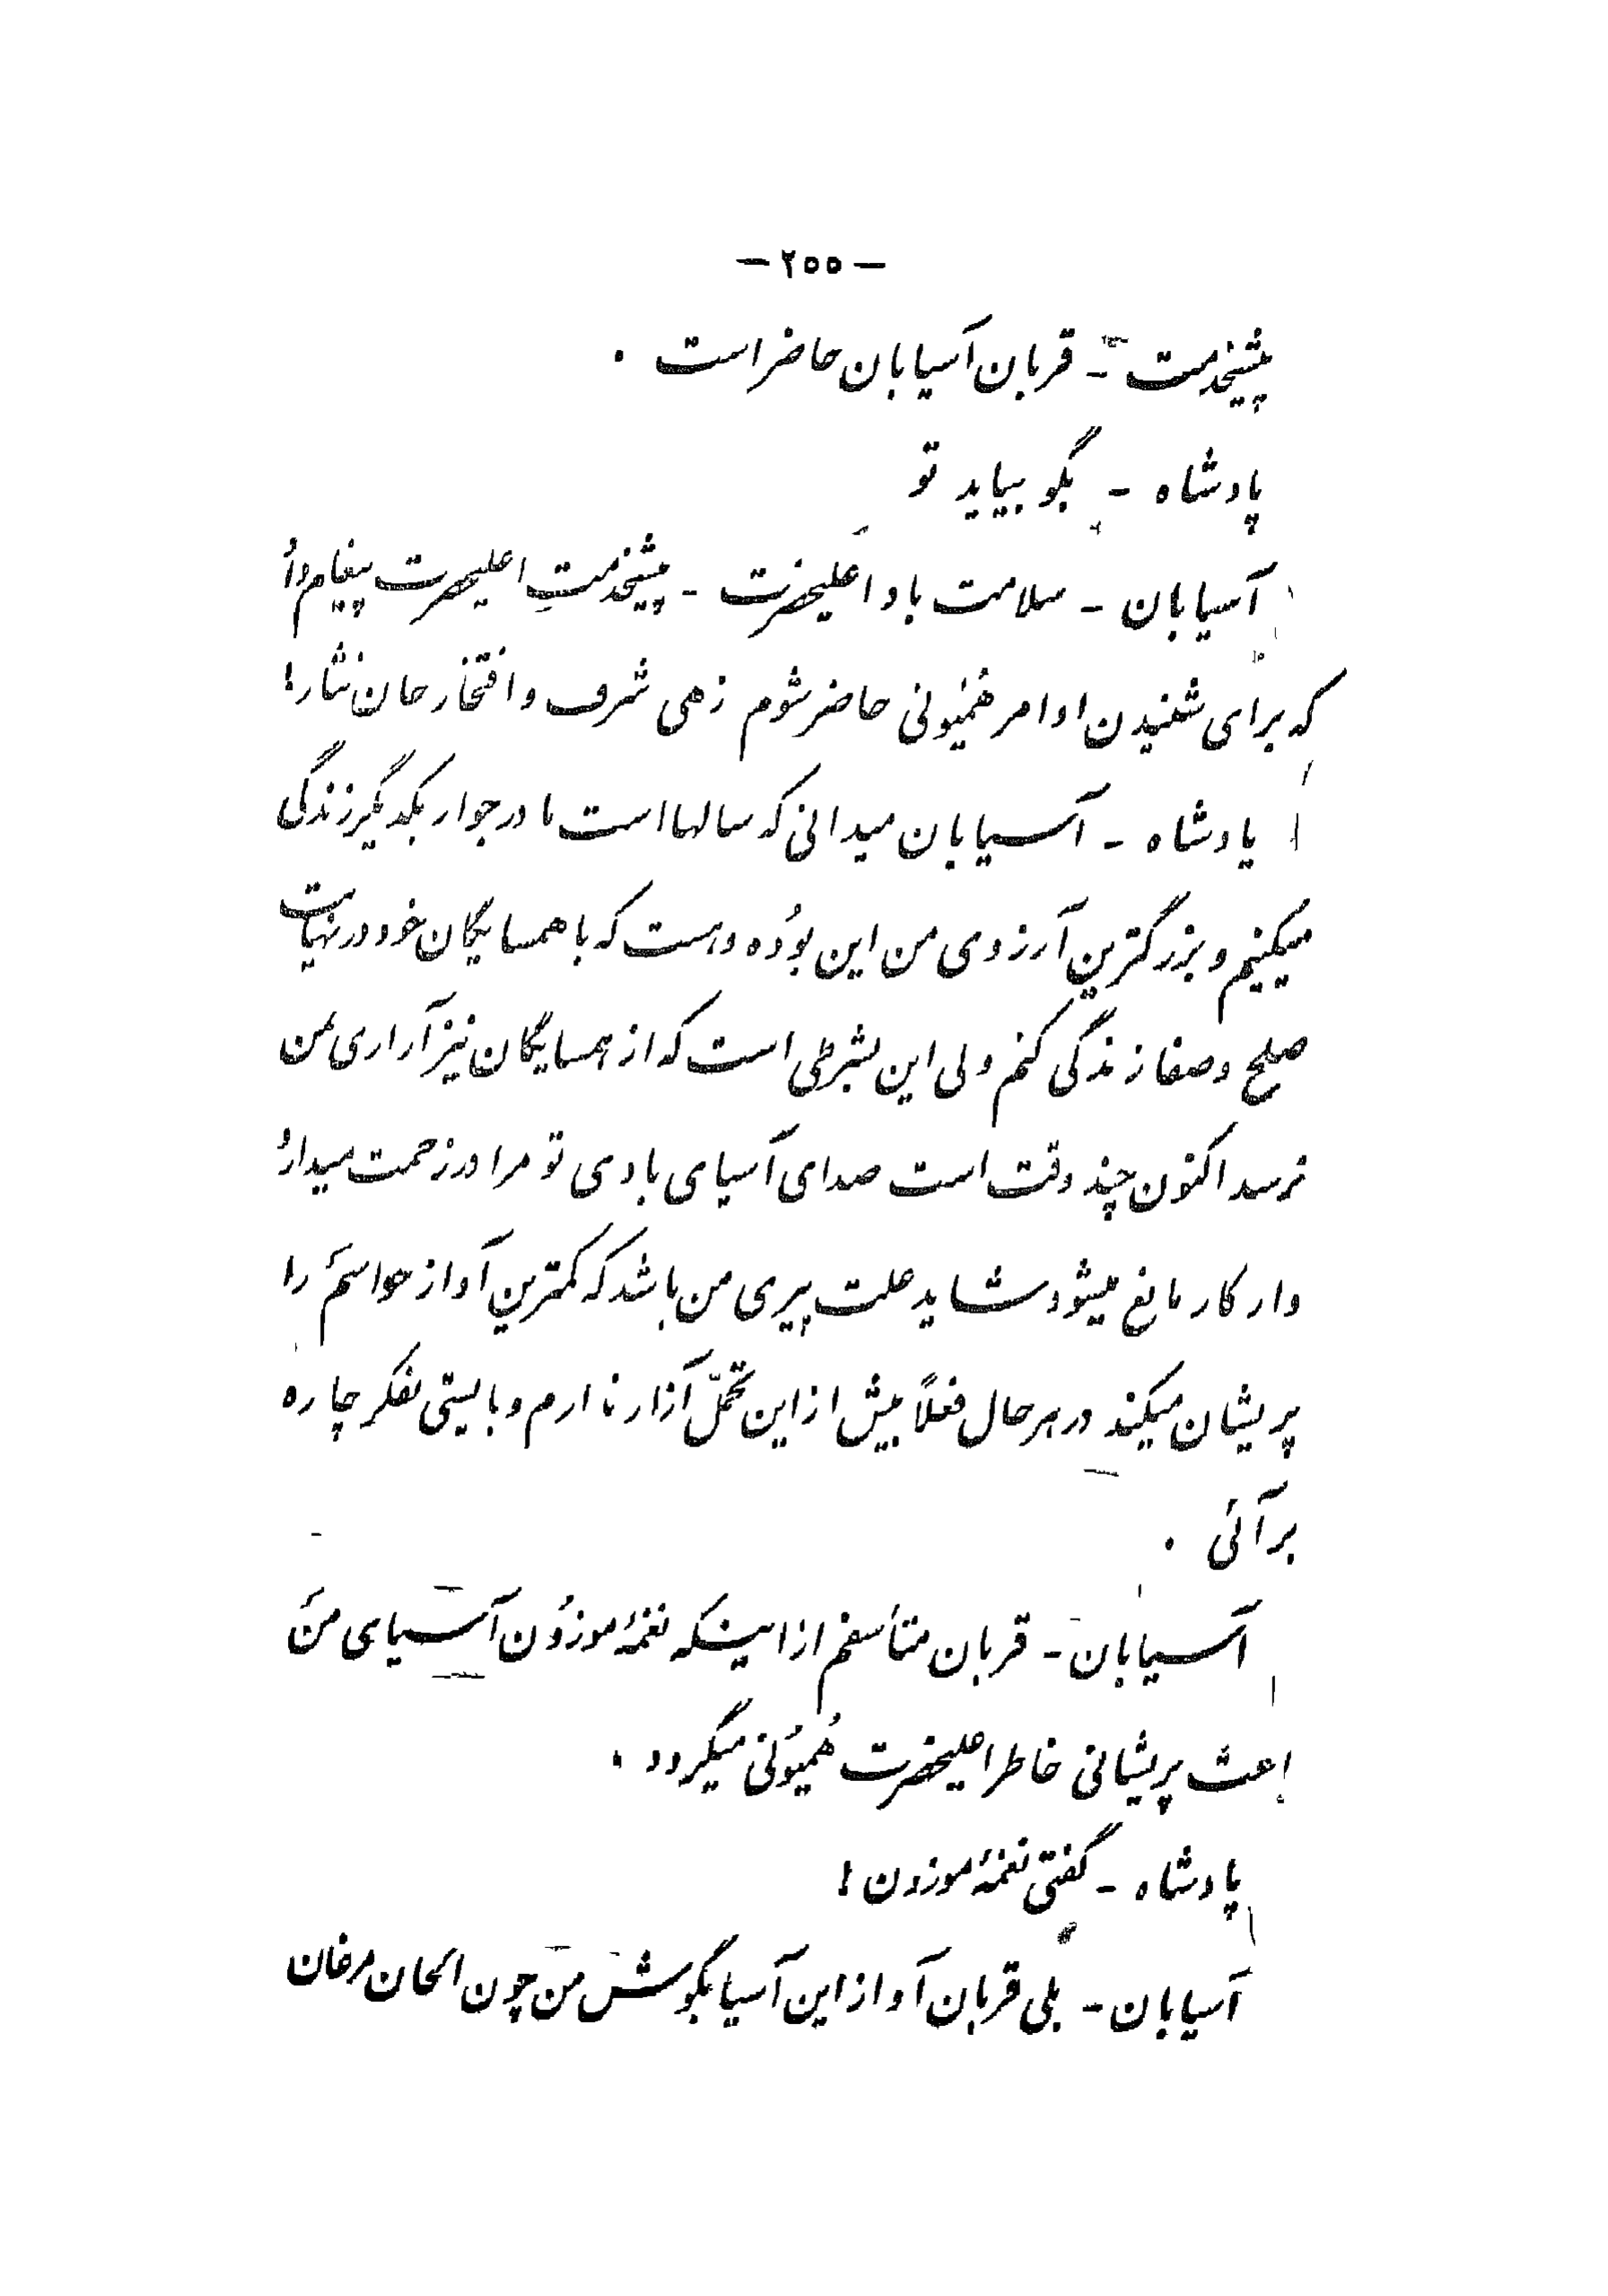 — ۲۵۵ —
پیشخدمت - قربان آسیابان حاضر است .
پادشاه - بگو بیاید تو
آسیابان - سلامت باد اعلیحضرت - پیشخدمتِ اعلیحضرت پیغام داد
که برای شنیدن اوامر هُمیونی حاضر شوم زهی شرف و افتخار جان نثار !
پادشاه - آسیابان میدانی که سالها است ما در جوار یکدیگر زندگی
میکنیم و بزرگترین آرزوی من این بوُده و هست که با همسایگان خود در نهایت
صلح و صفا زندگی کنم ولی این بشرطی است که از همسایگان نیز آزاری بمن
نرسد اکنون چند وقت است صدای آسیای بادی تو مرا در زحمت میدارد
و از کار مانع میشود شاید علت پیری من باشد که کمترین آواز حواسم را
پریشان میکند در هر حال فعلاً بیش از این تحمّل آزار ندارم و بایستی بفکر چاره
برآئی .
آسیابان - قربان متأسفم از اینکه نغمهٔ موزوُن آسیای من
باعث پریشانی خاطر اعلیحضرت هُمیوُنی میگردد .
پادشاه - گفتی نغمهٔ موزون !
آسیابان - بلی قربان آواز این آسیا بگوش من چون الحان مرغان